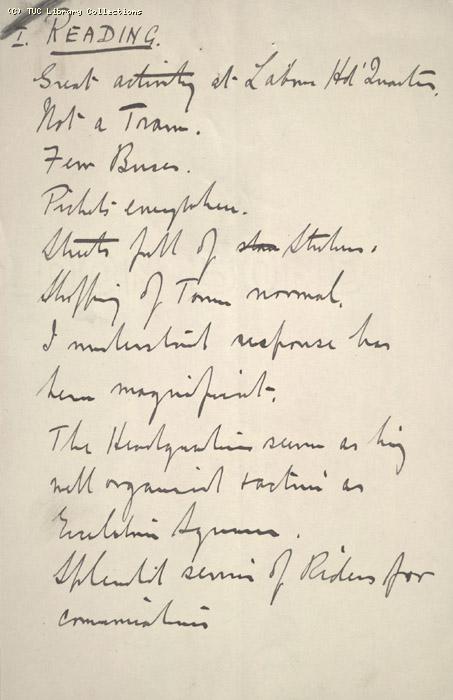 (C) TUC Library Collections
I. READING.
Great activity at Labour Hd' Quarters.
Not a Tram.
Few Buses.
Pickets everywhere.
Streets full of Strikers.
Shopping of Town normal.
I understand response has
been magnificent.
The Headquarters seem as big
well organised & active as
Eccleston Square.
Splendid service of Riders for
communications